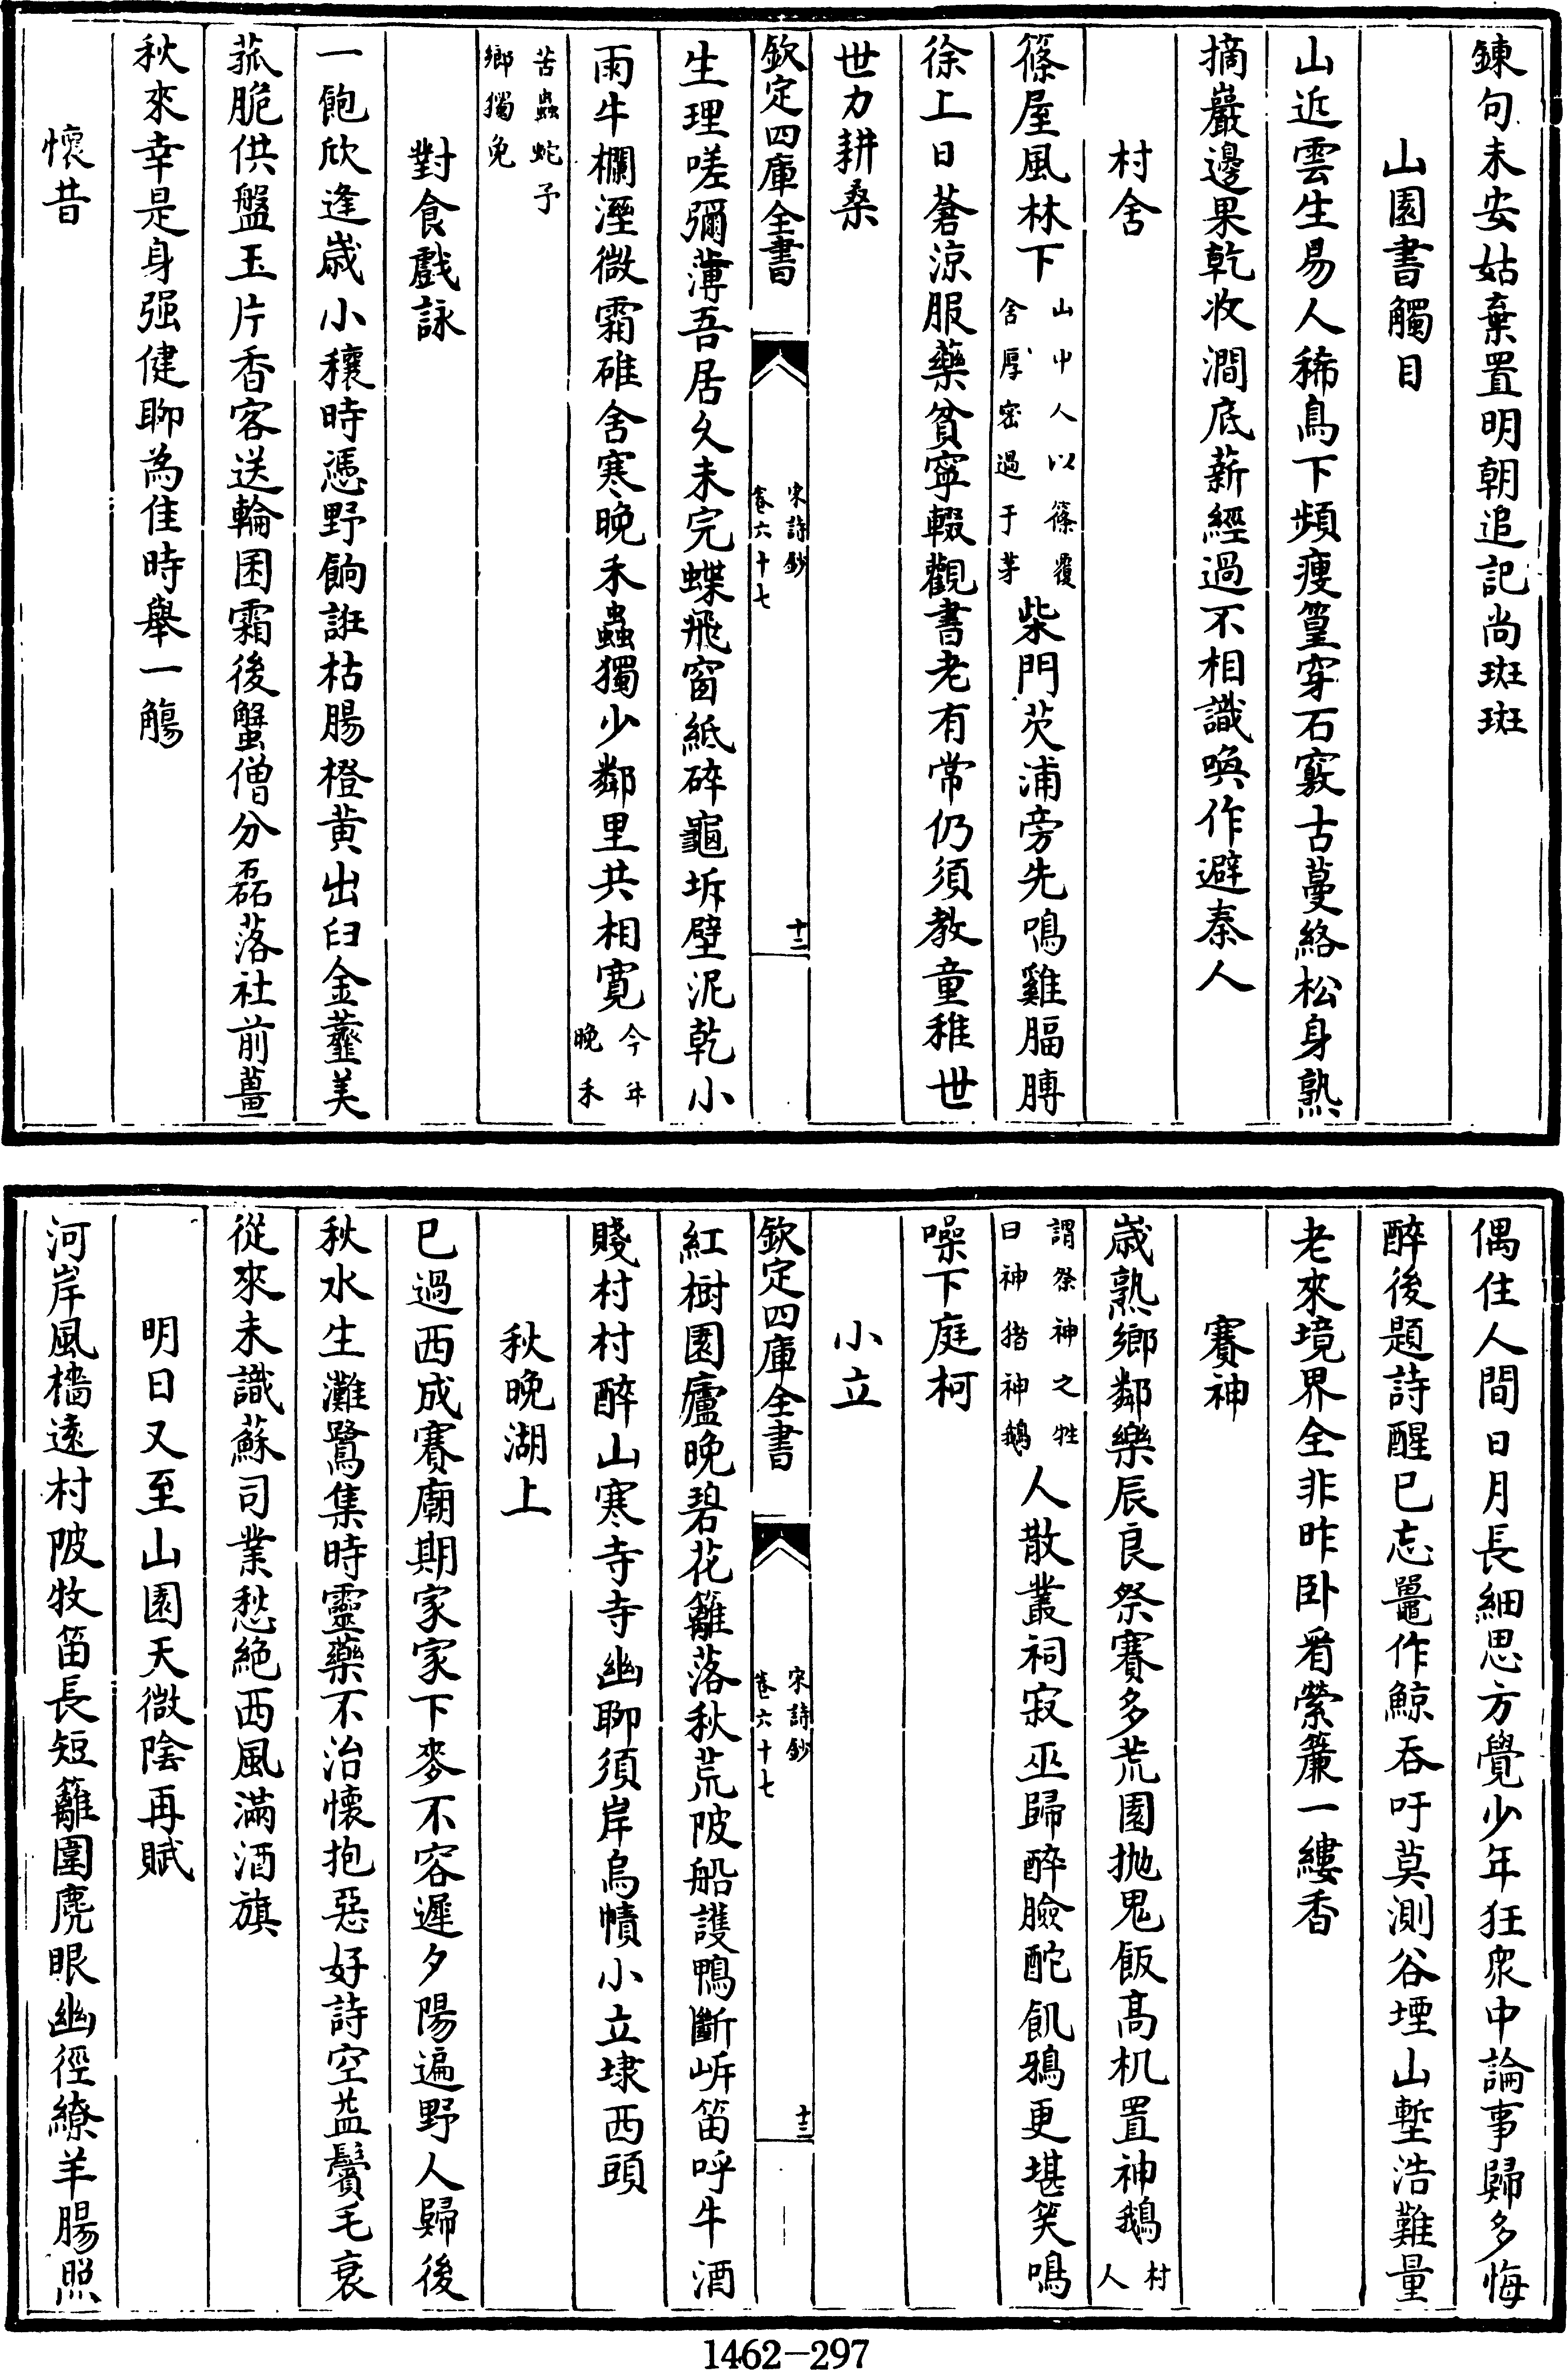 鍊句未安姑棄置明朝追記尚斑斑
山園書觸目
山近雲生易人稀鳥下頻瘦篁穿石竅古蔓絡松身熟
摘巖邊果乾收澗底薪經過不相識喚作避秦人
村舍
篠屋風林下山中人以篠覆舍厚密過于茅柴門茨浦旁先鳴雞腷膊
徐上日蒼涼服藥貧寧輟觀書老有常仍須教童稚世
世力耕桑
欽定四庫全書 宋詩鈔 卷六十七 十二
生理嗟彌薄吾居久未完蝶飛窗紙碎龜坼壁泥乾小
雨牛欄溼微霜碓舍寒晚禾蟲獨少鄰里共相寬今年晚禾
苦蟲蛇予鄉獨免
對食戲詠
一飽欣逢歲小穰時憑野餉誑枯腸橙黃出臼金虀美
菰脆供盤玉片香客送輪囷霜後蟹僧分磊落社前薑
秋來幸是身强健聊為佳時舉一觴
懷昔
偶住人間日月長細思方覺少年狂衆中論事歸多悔
醉後題詩醒已忘鼉作鯨吞吁莫測谷堙山塹浩難量
老來境界全非昨卧看縈簾一縷香
賽神
歲熟鄉鄰樂辰良祭賽多荒園抛鬼飯高机置神鵝村人
謂祭神之牲曰神猪神鵝人散叢祠寂巫歸醉臉酡飢鴉更堪笑鳴
噪下庭柯
小立
欽定四庫全書 宋詩鈔 卷六十七 十三
紅樹園廬晚碧花籬落秋荒陂船護鴨斷岸笛呼牛酒
賤村村醉山寒寺寺幽聊須岸烏幘小立埭西頭
秋晚湖上
已過西成賽廟期家家下麥不容遲夕陽遍野人歸後
秋水生灘鷺集時靈藥不治懷抱惡好詩空益鬢毛衰
從來未識蘇司業愁絶西風滿酒旗
明日又至山園天微陰再賦
河岸風檣遠村陂牧笛長短籬圍麂眼幽徑繚羊腸照
1462-297